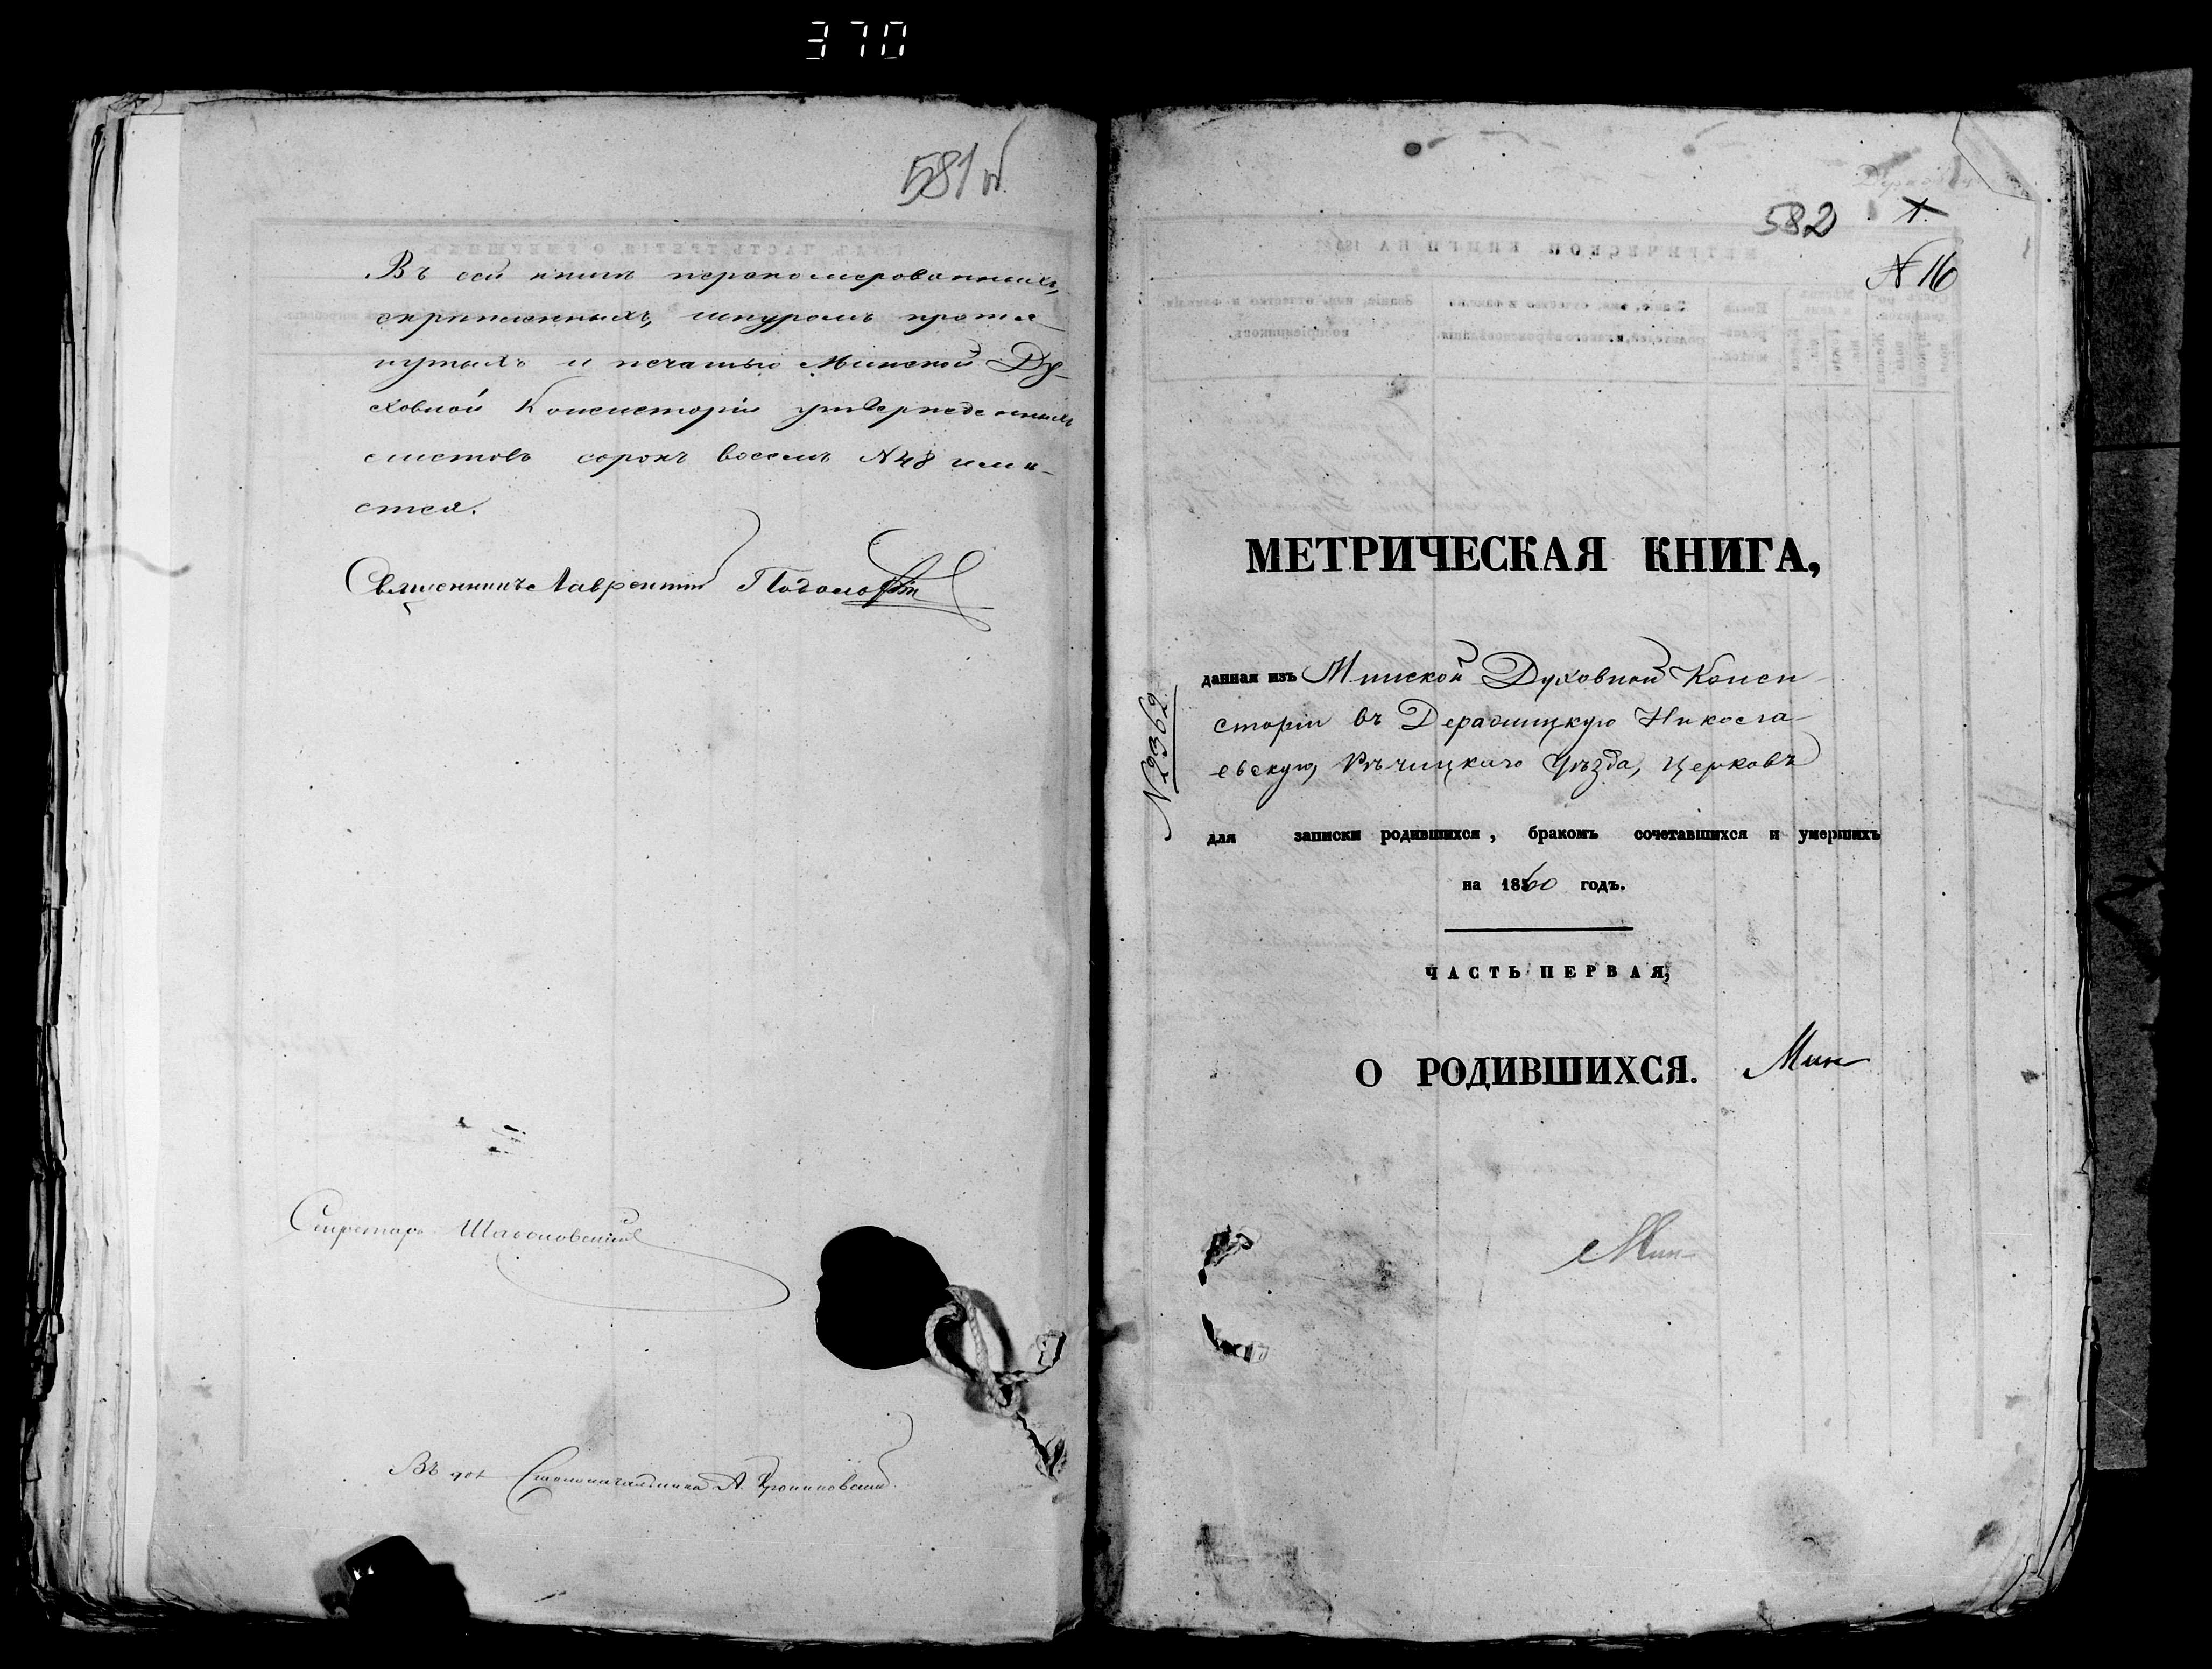 370
581 об
Въ сей книгѣ переномерованныхъ,
скрѣпленныхъ, шнуромъ протя-
нутыхъ и печатью Минской Ду-
ховной Консисторіи утвержденныхъ
листовъ сорокъ восемь №48 имѣ-
ется.
Священникъ Лаврентій
Секретарь
Въ Столоначальника А.
582 1.
№ 16
МЕТРИЧЕСКАЯ КНИГА,
данная изъ Минской Духовной Конси-
сторіи въ Деражицкую Никола-
евскую, Рѣчицкаго Уѣзда, Церковь
№2362
для записки родившихся, бракомъ сочетавшихся и умершихъ
на 1860 годъ.
ЧАСТЬ ПЕРВАЯ,
О РОДИВШИХСЯ. Мин
Мин